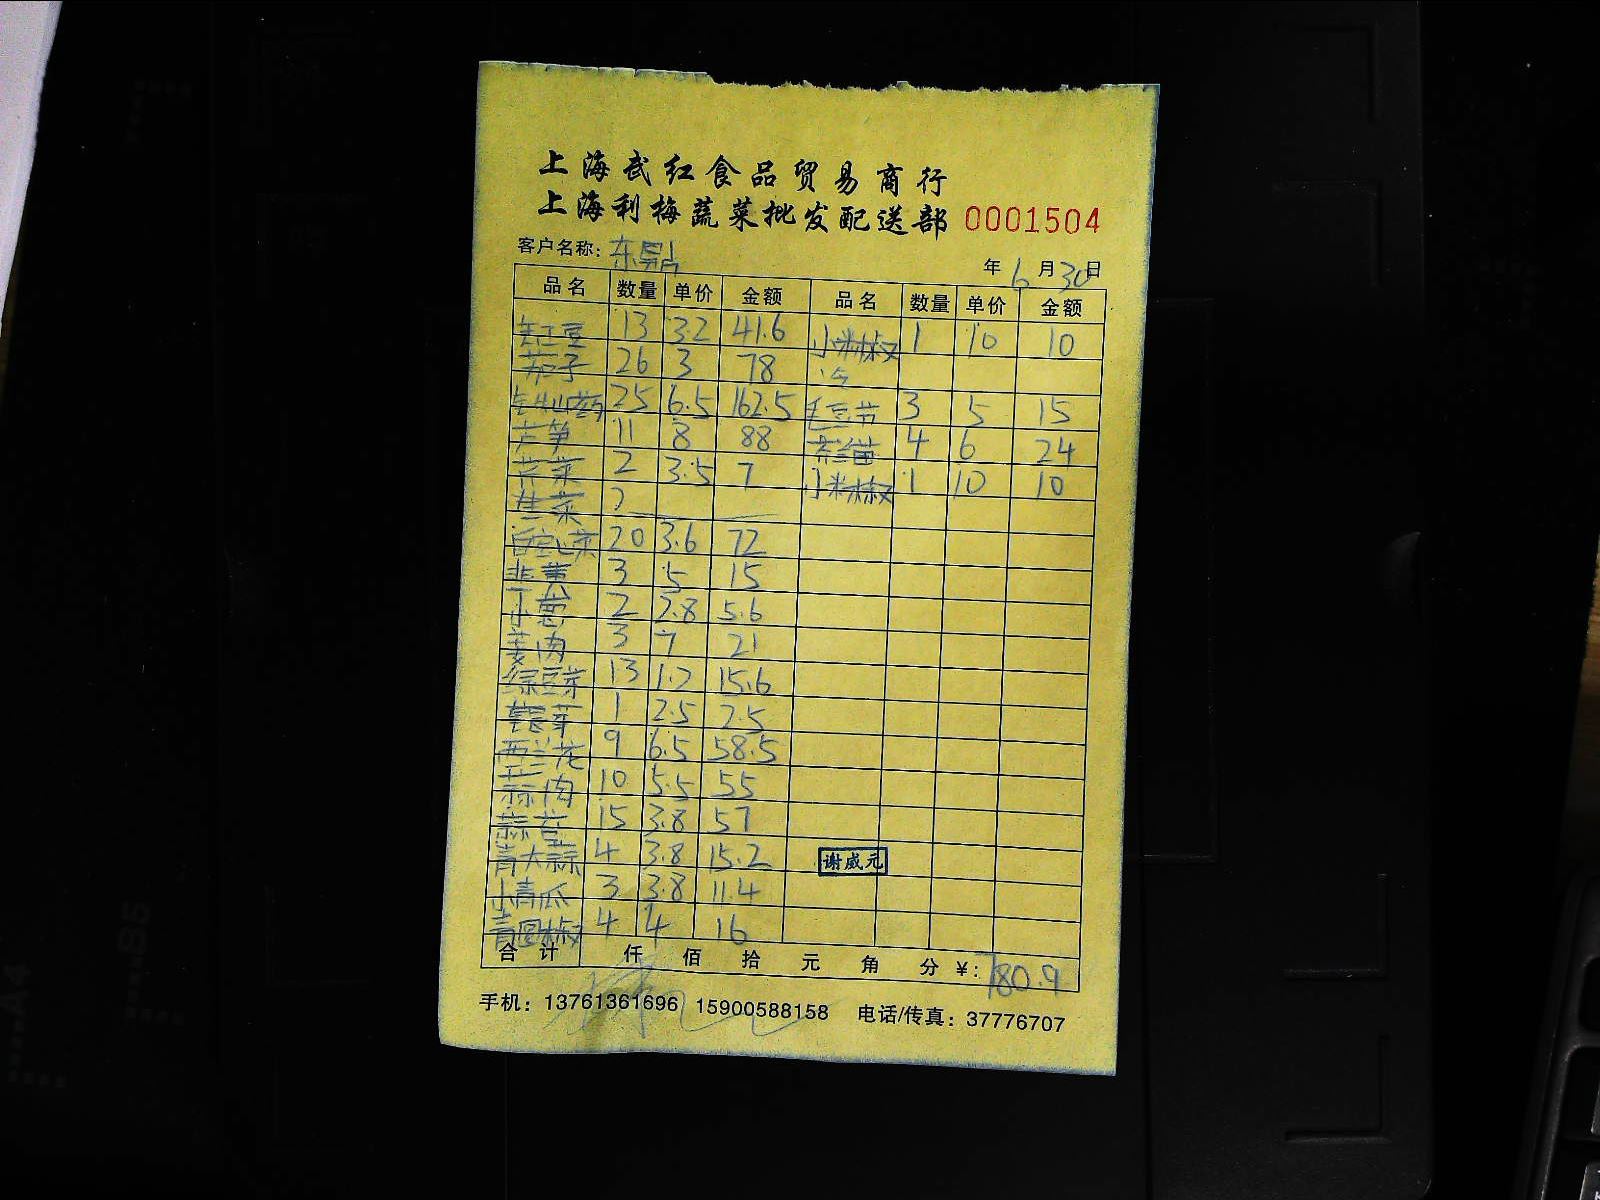 上海武红食品贸易商行
上海利梅蔬菜批发配送部 0001504
客户名称: 东 年 6 月 30 日
品名 数量 单价 金额 品名 数量 单价 金额
豆 13 3.2 41.6 小米椒 1 10 10
茄子 26 3 78
山药 25 6.5 162.5 毛豆节 3 5 15
芦笋 11 8 88 苗 4 6 24
芹菜 2 3.5 7 小米椒 1 10 10
生菜
白空心菜 20 3.6 72
韭黄 3 5 15
小葱 2 2.8 5.6
姜肉 3 7 21
绿豆芽 13 1.2 15.6
银芽 1 2.5 2.5
西兰花 9 6.5 58.5
蒜肉 10 5.5 55
蒜苔 15 3.8 57
青大蒜 4 3.8 15.2 谢威元
小青瓜 3 3.8 11.4
青圆椒 4 4 16
合计 仟 佰 拾 元 角 分 ¥: 780.9
手机: 13761361696 15900588158 电话/传真: 37776707